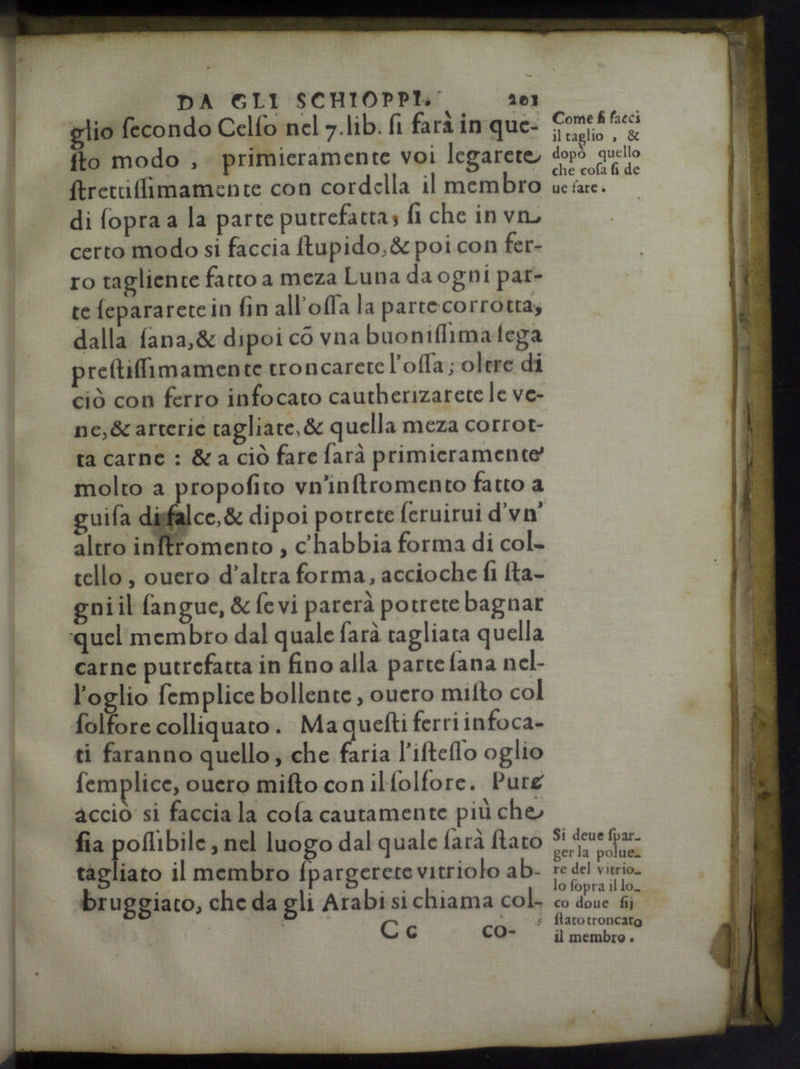 DA GLI SCHIOPPI. 201
glio ſecondo Celſo nel 7.lib. ſi farà in que-
ſto modo , primieramente voi legarete
ſtrettiſſimamente con cordella il membro
di ſopra a la parte putrefatta, ſi che in vn
certo modo si faccia ſtupido,& poi con fer-
ro tagliente fatto a meza Luna da ogni par-
te ſepararete in ſin all'oſſa la parte corrotta,
dalla ſana,& dipoi cõ vna buoniſſima ſega
preſtiſſimamente troncarete l'oſſa; oltre di
ciò con ferro infocato cautherizarete le ve-
ne,& arterie tagliate,& quella meza corrot-
ta carne : & a ciò fare ſarà primieramente
molto a propoſito vn'inſtromento fatto a
guiſa di falce,& dipoi potrete ſeruirui d'vn'
altro inſtromento , c'habbia forma di col-
tello , ouero d'altra forma, accioche ſi ſta-
gni il ſangue, & ſe vi parerà potrete bagnar
quel membro dal quale ſarà tagliata quella
carne putrefatta in fino alla parte ſana nel-
l'oglio ſemplice bollente , ouero miſto col
ſolfore colliquato . Ma queſti ferri infoca-
ti faranno quello, che faria l'iſteſſo oglio
ſemplice, ouero miſto con il ſolfore. Pure
acciò si faccia la coſa cautamente più che
ſia poſſibile , nel luogo dal quale ſarà ſtato
tagliato il membro ſpargerete vitriolo ab-
bruggiato, che da gli Arabi si chiama col-
Cc co-
Come ſi facci
il taglio , &
dopò quello
che coſa ſi de
ue fare .
Si deue ſpar-
ger la polue-
re del vitrio-
lo ſopra il lo-
co doue ſij
ſtato troncato
il membro .